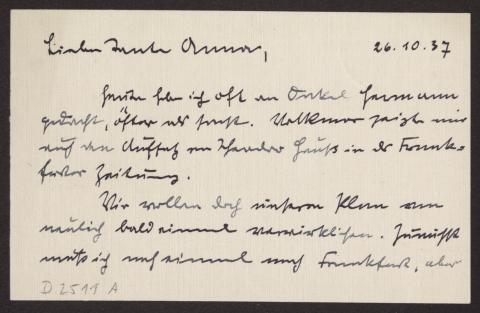 Liebe Tante Anna,
26.10.37
heute habe ich oft an Onkel Hermann
gedacht, öfter als sonst. Volkmar zeigte mir
auch den Aufsatz von Theodor Heuß in der Frank-
furter Zeitung.
Wir wollen doch unseren Plan von
neulich bald einmal verwirklichen. Zunächst
muß ich noch einmal nach Frankfurt, aber
D.2511 A